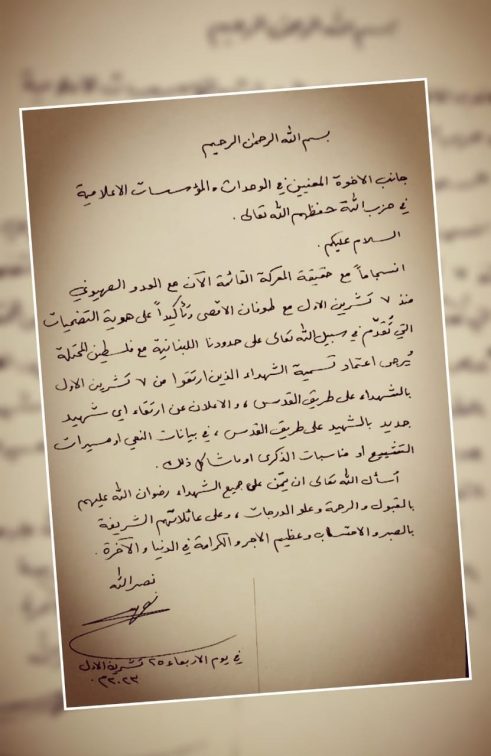 بسم الله الرحمن الرحيم
جانب الاخوة المعنيين في الوحدات والمؤسسات الاعلامية
في حزب الله حفظهم الله تعالى .
السلام عليكم .
انسجاماً مع حقيقة المعركة القائمة الآن مع العدو الصهيوني
منذ ٧ تشرين الاول مع طوفان الاقصى وتأكيداً على هوية التضحيات
التي تُقدّم في سبيل الله تعالى على حدودنا اللبنانية مع فلسطين المحتلة
يُرجى اعتماد تسمية الشهداء الذين ارتقوا من ٧ تشرين الاول
بالشهداء على طريق القدس ، والاعلان عن ارتقاء اي شهيد
جديد بالشهيد على طريق القدس ، في بيانات النعي او مسيرات
التشييع او مناسبات الذكرى او ما شاكل ذلك .
أسأل الله تعالى ان يمنّ على جميع الشهداء رضوان الله عليهم
بالقبول والرحمة وعلو الدرجات ، وعلى عائلاتهم الشريفة
بالصبر والاحتساب وعظيم الاجر والكرامة في الدنيا والآخرة .
نصر الله
في يوم الاربعاء ٢٥ تشرين الاول
٢٠٢٣م .